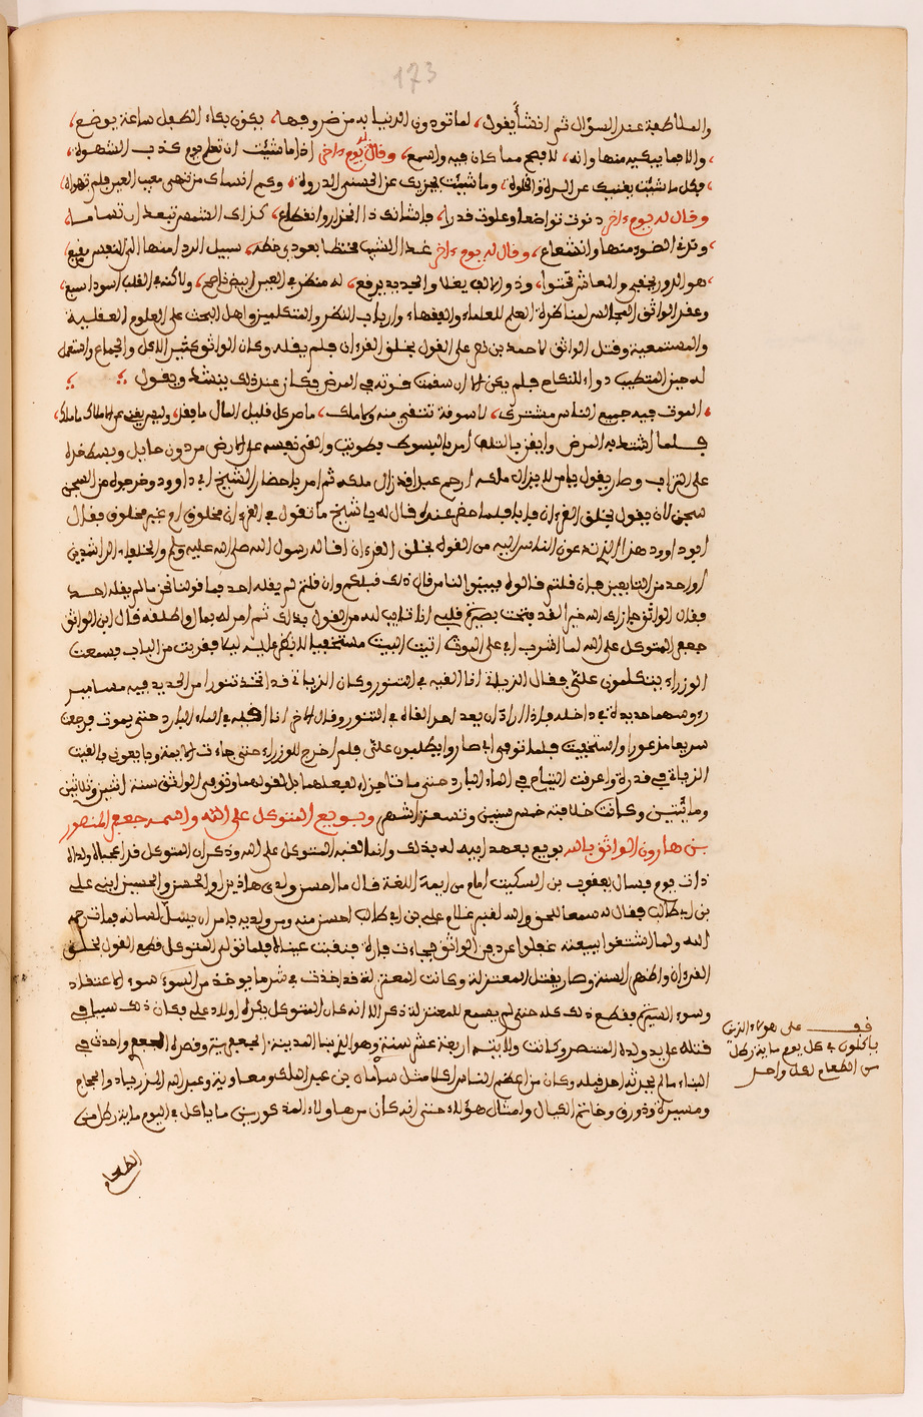 173
والملاطفة عند السؤال ثم انشأ يقول، لما تودون الدنيا به من ضروفها، يكون بكاء الطفل ساعة يوضع،
، والا فما يبكيه منها وانه، لافسح مما كان فيه واسع، وقال له يوم ءاخر اذا ما شئت ان تعلم يوم كذب الشهوة،
، فكل ما شئت يغنيك عن المرة والحلوة، وما شئت يجزيك عن الحسنى الدروة، وكم انساك من تهوى معيب العين فلم تهواه،
وقال له يوم ءاخر دنوت تواضعا وعلوت قدرا، فشانك ذا انحدار وانقطاع، كذاك الشمس تبعد ان تساما،
، وترى الضوء منها والشعاع، وقال له يوم ءاخر غدا الشيب مختطا بعودي خطه، سبيل الردا منها الى النفس مهيع
، هو الزور يجفى والمعاشر يجتوا، وذو الالف يقلا والجديد يرقع، له منظر في العين ابيض ناصع، ولاكنه في القلب اسود اسبع،
وعقد الواثق المجالس لمناظرة اهل العلم للعلماء والفقهاء وارباب النظر والمتكلمين واهل البحث على العلوم العقلية
والمستمعية وقتل الواثق لاحمد بن نصر على القول بخلق القرءان فلم يقله وكان الواثق كثير الاكل والجماع واستعمل
له جبن المتطبب دواء للنكاح فلم يكن الا ان سقطت قوته في المرض فكان عند ذلك ينشد ويقول
، الموت فيه جميع الناس مشتركى، لا سوقة تنتفى منه ولا ملك، ما ضر كل قليل المال ما يقل، وليس يغنى عن الاملاك ما ملك،
فلما اشتد به المرض وايقن بالتلف امر بالبسوط بطويت والقى نفسه على الارض من دون حايل وبسط خده
على التراب وصار يقول يا من لا يزال ملكه ارحم عبدا قد زال ملكه ثم امر باحضار الشيخ ابي داوود وخرجوه من السجن
سجن لان يقول بخلق القرءان فابا فلما حضر عنده قال له يا شيخ ما تقول في القرءان مخلوق ام غير مخلوق فقال
ابو داوود هذا الذي تدعون الناس اليه من القول بخلق القرءان اقاله رسول الله صلى الله عليه وسلم والخلفاء الراشدين
او احد من التابعين فان قلتم قالوه فبينوا للناس قال ذلك قبلكم وان قلتم لم يقله احد فما قولنا نحن ما لم يقله احد
فقال الواثق جازاك الله خيرا لقد فتحت بصيرة قلبي انا تايب لله من القول بذلك ثم امر له بمال واطلقه قال ابن الواثق
جعفر المتوكل على الله لما اشرف ابي على الموت اتيت البيت مستخفيا لانظر عليه ليلا فقربت من الباب فسمعت
الوزراء يتكلمون علي فقال الزيات انا القيه في التنور وكان الزيات قد اتخذ تنورا من الحديد فيه مسامير
رءوسها حديدة في داخله فاذا اراد ان يعد احدا القاه في التنور وقال الاخر انا القيه في الماء البارد حتى يموت فرجعت
سريعا مذعورا واستخفيت فلما توفي ابي صاروا يطلبون علي فلم اخرج للوزراء حتى جاءت الايمة وبايعوني فالقيت
الزيات في قدرة واغرقت النياح في الماء البارد حتى ماتا جزاء لفعلهما بل لقولهما وتوفي الواثق سنة اثنين وثلاثين
وماءتين وكانت خلافته خمس سنين وتسعة اشهر وبويع المتوكل على الله واسمه جعفر المنصور
بن هارون الواثق بالله بويع بعهد ابيه له بذلك وانما لقبه المتوكل على الله وذكر ان المتوكل قد اعجباه ولداه
ذات يوم فسال يعقوب بن السكيت امام من ايمة اللغة فقال ما احسن ولدي هاذين او الحسن والحسين ابني على
بن ابي طالب فقال له سمعا للحق والله لقنبر غلام على بن ابي طالب احسن منه ومن ولديه فامر ان يسل لسانه فمات رحمه
الله ولما اشتغوا ببيعته غفلوا عن دفن الواثق فجاءت فارة فنقبت عيناه فلما تولى المتوكل قطع القول بخلق
القرءان واظهر السنة وصار يقتل المعتزلة وكانت المعتزلة قد اخذت في شر ما يوخذ من السوء سوء الاعتقاد
وسوء السيرة فقطع ذلك كله حتى لم يسمع للمعتزلة ذكر الا انه كان المتوكل يكره اولاد على وكان ذلك سببا في
قتله على يد ولده المنتصر وكانت ولايته اربعة عشر سنة وهو الذي بنا المدينة الجعفرية وقصره الجعفري واحدث في
البناء ما لم يحدثه احد قبله وكان من اعظم الناس اكلا مثل سلمان بن عبد الملك ومعاوية وعبد الله الزرياد والحجاج
وميسرة وذورق وخاتم الكيال وامثال هؤلاء حتى انه كان من هاولاء المذكورين ما ياكل في اليوم ماية رطل من
الطعام
قف على هولاء الذين
ياكلون في كل يوم ماية رطل
من الطعام لكل واحد